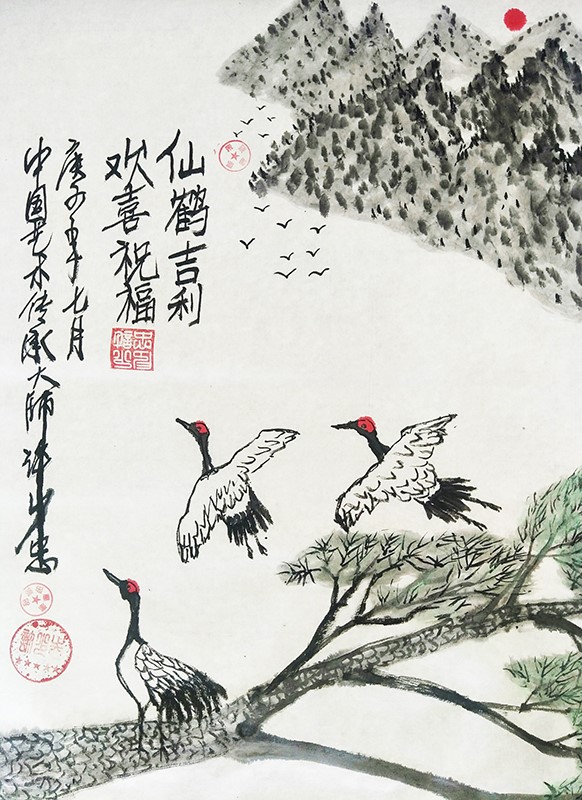 仙鹤吉利
欢喜祝福
庚子年七月
中国艺术传承大师许